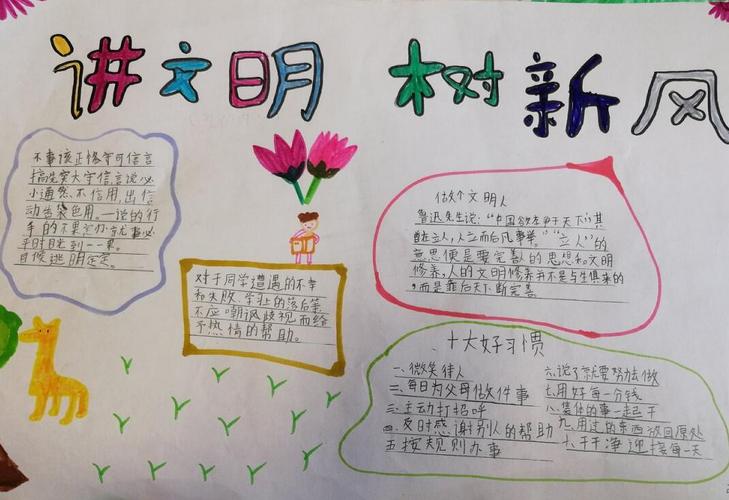 讲文明 树新风
不事该正修等可信言
搞选实大字信言说必
小通然、不信用,出信
动当染色用。一说的行
手的不果必办,
平时目走到一一果。
日候逃明定定。
对于同学遭遇的不幸
和失败,学业的落后等
不应嘲讽歧视而给
予热情的帮助。
做个文明人
鲁迅先生说:“中国欲存争于天下,其
首在立人,人立而后凡事举。”“立人”的
意思便是要完善的思想和文明
修养,人的文明修养并不是与生俱来的
,而是靠后天下断完善
十大好习惯
一、微笑待人
二、每日为父母做件事
三、主动打招呼
四、及时感谢别人的帮助
五、按规则办事
六、说了就要努力做
七、用好每一分钱
八、集体的事一起干
九、用过的东西放回原处
十、干干净迎接每一天